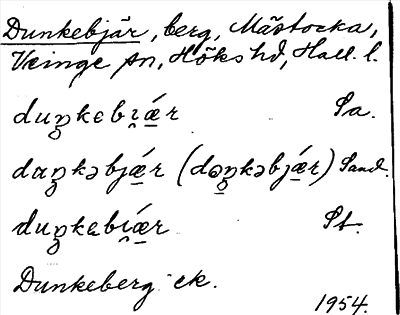 Dunkebjär, berg, Mästocka,
Veinge sn, Höks hd, Hall. l.
duŋkebi̯ǽr Sa.
daŋkəbjǽr (dəŋkəbjǽr) Sand.
duŋkebi̯ǽr St.
Dunkeberg ek.
1954.